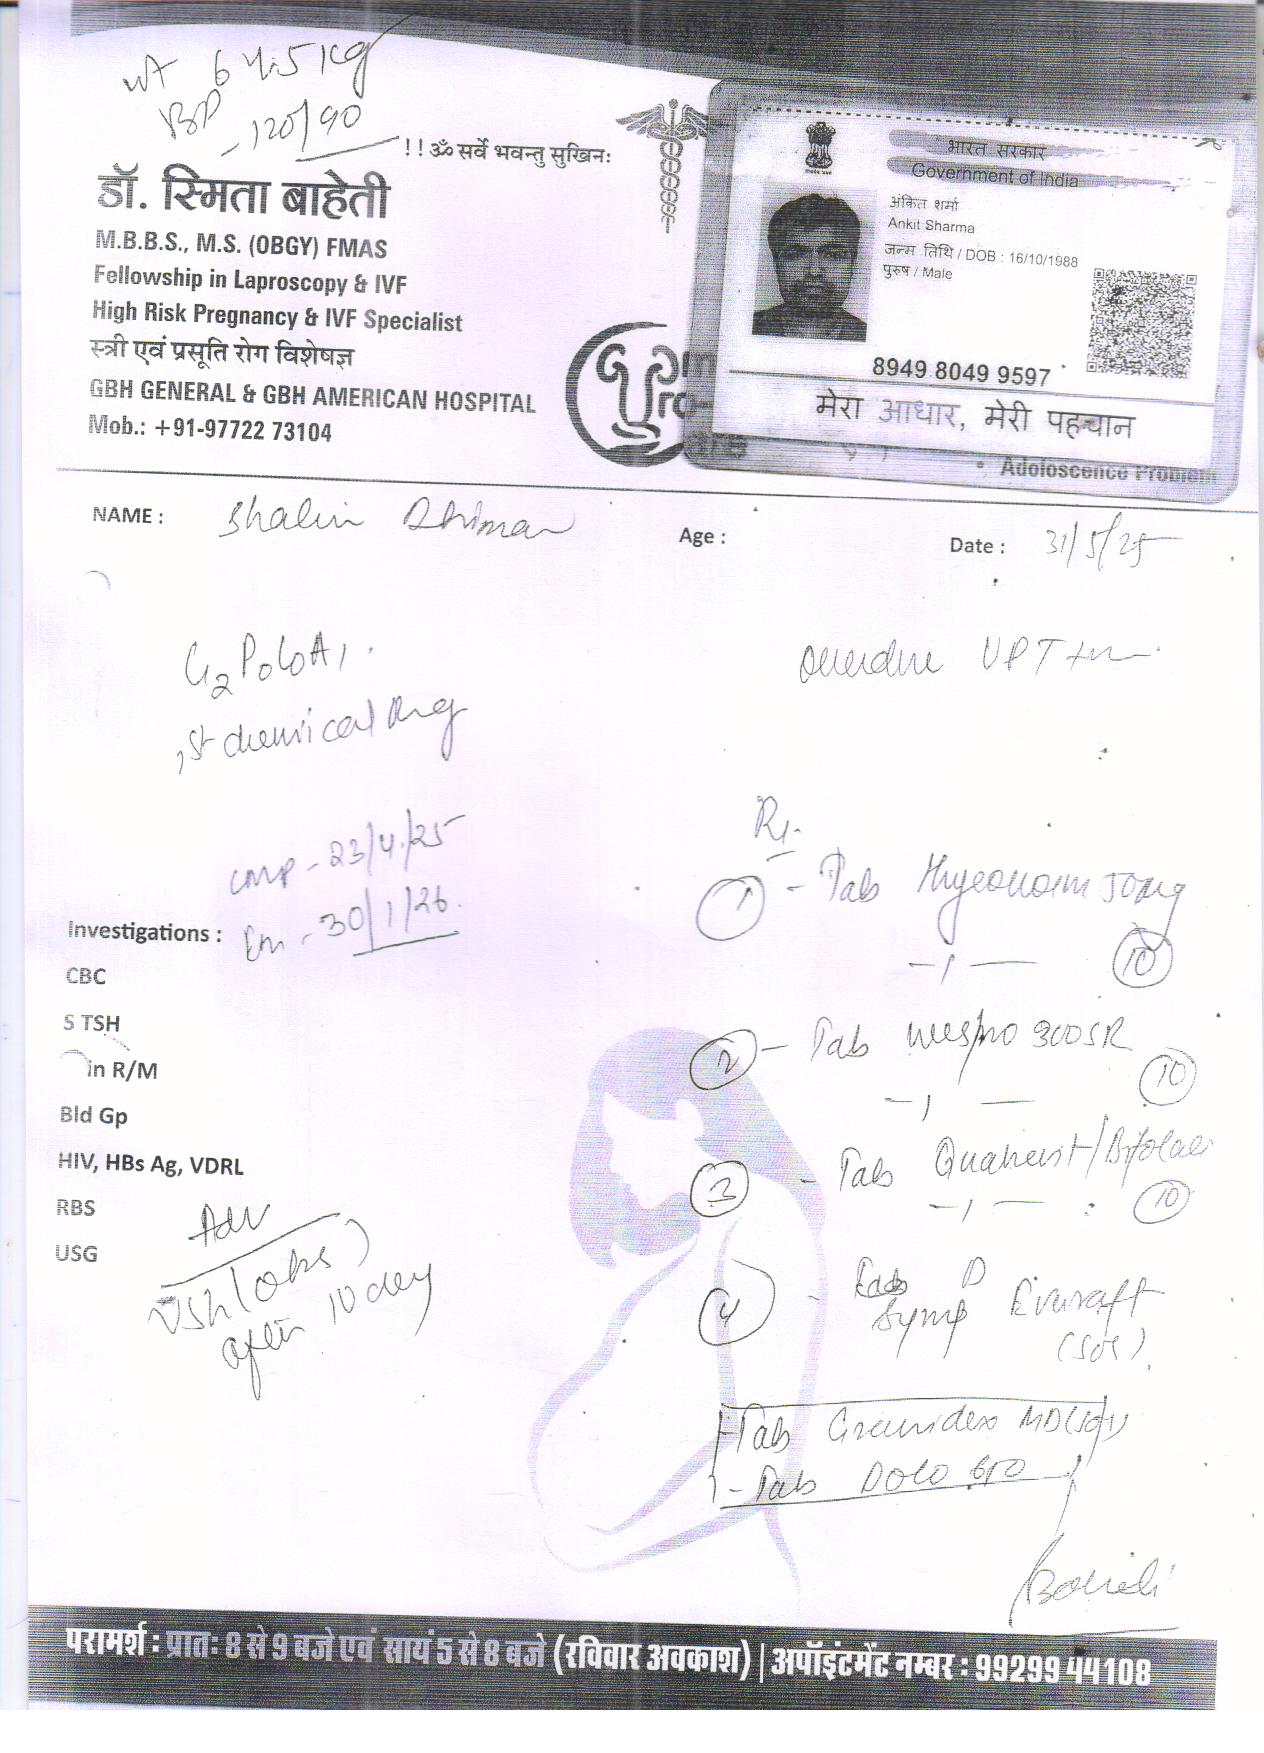 wt 64.5 kg
BP - 120/90
!! ॐ सर्वे भवन्तु सुखिनः
डॉ. स्मिता बाहेती
M.B.B.S., M.S. (OBGY) FMAS
Fellowship in Laproscopy & IVF
High Risk Pregnancy & IVF Specialist
स्त्री एवं प्रसूति रोग विशेषज्ञ
GBH GENERAL & GBH AMERICAN HOSPITAL
Mob.: +91-97722 73104
भारत सरकार
Government of India
अंकित शर्मा
Ankit Sharma
जन्म तिथि / DOB : 16/10/1988
पुरुष / Male
8949 8049 9597
मेरा आधार, मेरी पहचान
• Adoloscence Problem
NAME : Shalini Dhiman
Age :
Date : 31/5/25
G2P0L0A1
overdue UPT +ve
1st chemical Preg
LMP - 23/4/25
- 30/1/26
Rx
1 - Tab 10
2 - Tab 300SR 10
3 - Tab 10
4 - Syrup (SOS)
- Tab MD (SOS)
- Tab Dolo 650
Investigations :
CBC
S TSH
in R/M
Bld Gp
HIV, HBs Ag, VDRL
RBS
USG
Adv
USG (obs)
after 10 day
परामर्श : प्रातः 8 से 9 बजे एवं सायं 5 से 8 बजे (रविवार अवकाश) | अपॉइंटमेंट नम्बर : 99299 44108